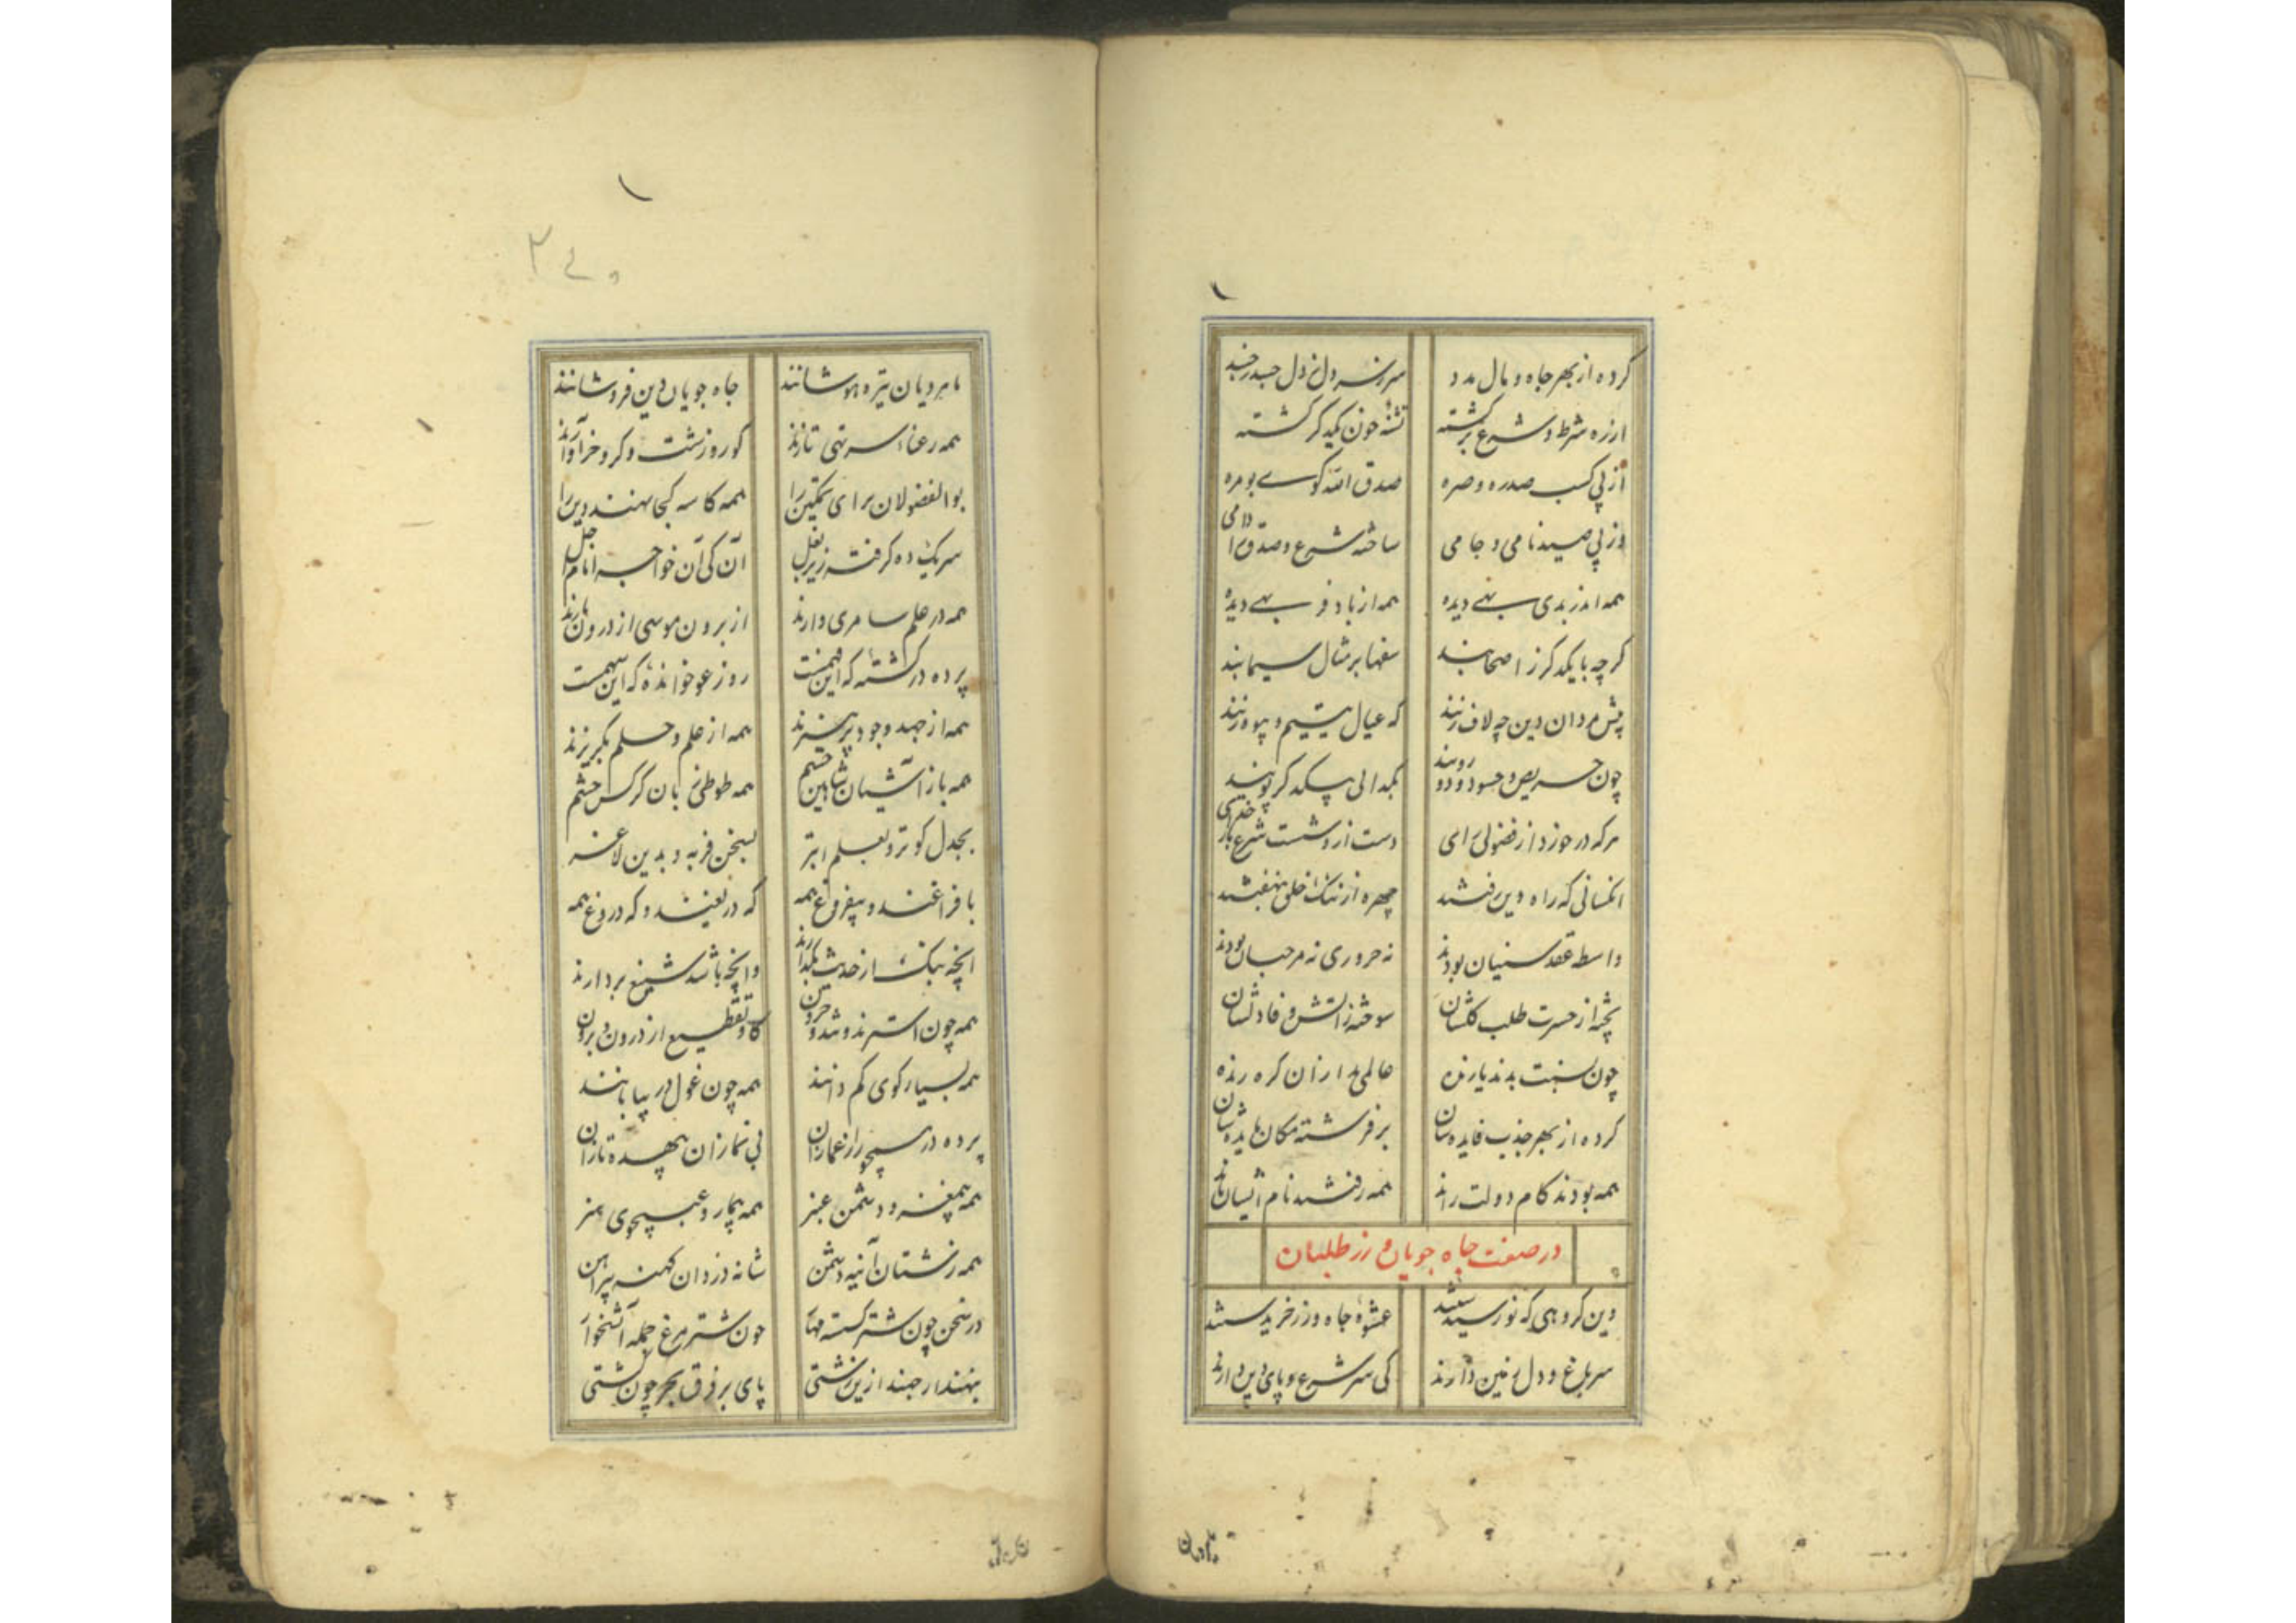 کرده از بهر جاه و مال مدد سر زشره دل ز دل حسد رخند
از ره شرط و شرع برگشته تشنه خون یکدگر گشته
از پی کسب صدره و صره صدق الله گوی بومره
وز پی صید نامی و جامی ساخته شرع و صدق را دامی
همه اندر بدی بهی دیده همه از باد فربهی دیده
گرچه با یکدگر ز اصحابند سفها بر مثال سیمابند
پیش مردان دین چه لاف زنند که عیال یتیم و بیوه زنند
چون حریص و حسود و دو روینـد بگدائی بیکدگر پویند
هرکه در خورد از فضولی رای دست از و شست شرع بار خدای
آنکسانی که راه دین رفتند چهره از ننک خلق بنهفتند
واسطه عقد سنیان بودند نه حروری نه مرجیان بودند
پخته از حسرت طلب کلشان سوخته ز آتش وفا دلشان
چون بسنت بدند یازنده عالمی بد از آن کره زنده
کرده از بهر جذب فایده شان بر فرشته مکان مایده شان
همه بودند کام دولت راند همه رفتند نام ایشان ماند
در صفت جاه جویان و زر طلبان
وین گروهی که نو رسیدستند عشوه جاه و زر خریدستند
سر باغ و دل زمین دارند کی سر شرع و پای دین دارند
ماهرویان تیره هوشانند جاه جویان دین فروشانند
همه رعنا سر تهی تازند کور و زشت و کر و خر آوازند
بوالفضولان برای تمکین را همه کاسه کجا نهند دین را
سر یک ده گرفته زیر بغل کان کی آن خواجه امام اجل
همه در علم سامری دارند از برون موسی از درون مارند
پرده در گشته که این فهمست روز عو خوانده که این سهمست
همه از جهد وجود پرهیزند همه از علم و حلم بگریزند
همه باز آشیان شاهین خشم همه طوطی زبان کرکس چشم
بجدل کوثر و بعلم ابتر بسخن فربه و بدین لاغر
بافراغند و بی‌فروغ همه که دریغند و که دروغ همه
آنچه نیکست از حدث بگذارند وانچه باشد شنیع بردارند
همه چون استرند و شد حرون گاو تقطیع از درون و برون
همه بسیار کوی کم دانند همه چون غول در بیابانند
پرده در همچو راز غمازان بی نمازان بچهره تازان
همه بی مغز و دشمن عنبر همه بیمار و عیب جوی هنر
همه زشتان آینه دشمن شانه دزدان کهنه پیراهن
در سخن چون شتر گسسته مهار چون شترمرغ جمله آتشخوار
بنهند ار جهند ازین زشتی پای بر فرق بحر چون کشتی